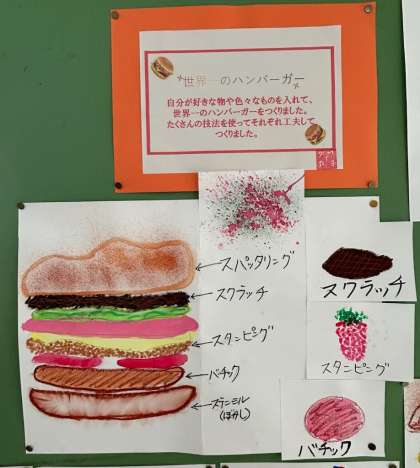 世界一のハンバーガー
自分が好きな物や色々なものを入れて、
世界一のハンバーガーをつくりました。
たくさんの技法を使ってそれぞれ工夫して
つくりました。
スパッタリング
スクラッチ
スタンピング
バチック
ステンシル
(ぼかし)
スクラッチ
スタンピング
バチック